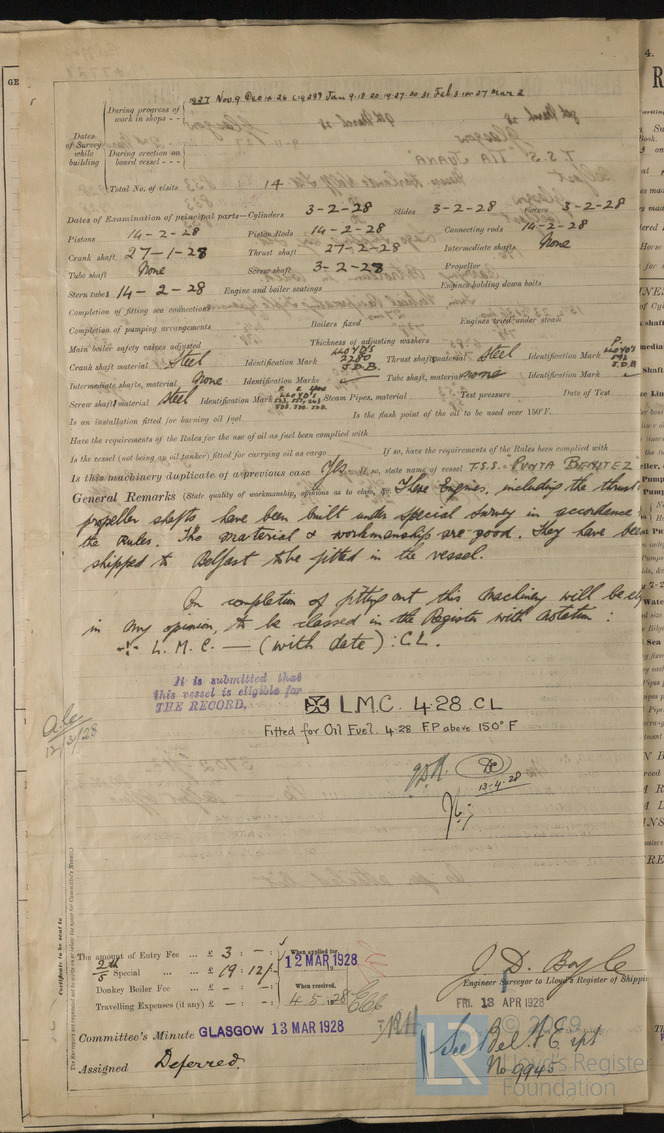 1927 Nov. 9 Dec 14. 26 (1928) Jan 9. 18. 20. 19. 27. 30. 31 Feb 3. 14. 27 Mar 2
Dates of Survey while building
During progress of work in shops - -
During erection on board vessel - - -
Total No. of visits 14
Dates of Examination of principal parts—Cylinders 3-2-28 Slides 3-2-28 Covers 3-2-28
Pistons 14-2-28 Piston Rods 14-2-28 Connecting rods 14-2-28
Crank shaft 27-1-28 Thrust shaft 27-2-28 Intermediate shafts None
Tube shaft None Screw shaft 3-2-28 Propeller
Stern tubes 14-2-28 Engine and boiler seatings Engines holding down bolts
Completion of fitting sea connections
Completion of pumping arrangements Boilers fixed Engines tried under steam
Main boiler safety valves adjusted Thickness of adjusting washers
Crank shaft material Steel Identification Mark LLOYD'S 2280 J.D.B. Thrust shaft material Steel Identification Mark LLOYD'S J.D.B
Intermediate shafts, material None Identification Marks Tube shaft, material none Identification Mark
Screw shaft material Steel Identification Mark LLOYD'S Steam Pipes, material Test pressure Date of Test
Is an installation fitted for burning oil fuel Is the flash point of the oil to be used over 150°F.
Have the requirements of the Rules for the use of oil as fuel been complied with
Is the vessel (not being an oil tanker) fitted for carrying oil as cargo If so, have the requirements of the Rules been complied with
Is this machinery duplicate of a previous case Yes If so, state name of vessel T.S.S. "PUNTA BENITEZ
General Remarks (State quality of workmanship, opinions as to class, &c. These Engines, including the thrust
propeller shafts have been built under special survey in accordance
the Rules. The material & workmanship are good. They have been
shipped to Belfast to be fitted in the vessel.
On completion of fitting out this machinery will be elig
in my opinion, to be classed in the Register with notation :
L.M.C. — (with date) : CL.
It is submitted that
this vessel is eligible for
THE RECORD.
L.M.C. 4.28 CL
Fitted for Oil Fuel 4.28 F.P. above 150°F
12/3/28
13-4-28
Certificate to be sent to
The amount of Entry Fee ... £ 3 : - :
Special ... ... £ 19 : 12/- :
Donkey Boiler Fee ... £ - : - :
Travelling Expenses (if any) £ - : - :
When applied for,
12 MAR 1928
When received,
4. 5. 28
J. D. Boyle
Engineer Surveyor to Lloyd's Register of Shippin
FRI. 13 APR 1928
Committee's Minute GLASGOW 13 MAR 1928
Assigned Deferred.
See Bel. F.E. rpt
No 9945
© 2019
Lloyd's Register
Foundation
LR